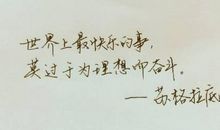 世界上最快乐的事,
莫过于为理想而奋斗。
—苏格拉底